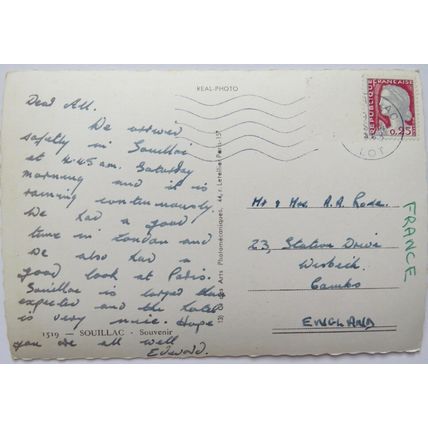 REAL-PHOTO
Dear All.
We arrived
safely in Souillac
at 4.45 am. Saturday
morning and it is
raining continuously.
We had a good
time in London and
we also had a
good look at Paris.
Souillac is larger than
expected and the hotel
is very nice. Hope
1519 — SOUILLAC - Souvenir
you are all well
Edward.
Arts Photomécaniques, 44, r. Letellier, Paris-15e
REPUBLIQUE FRANÇAISE
0,25
LOT
Mr & Mrs. A.A. Rode.
23, Station Drive
Wisbech
Cambs
ENGLAND
FRANCE